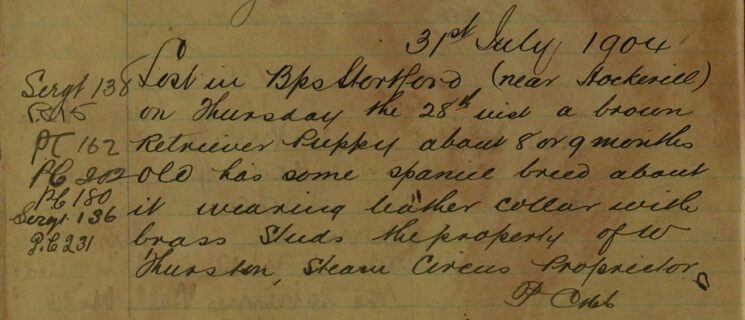 31st July 1904
Sergt 138 Lost in Bps Stortford (near Hockerill)
on Thursday the 28th inst a brown
PC 162 Retriever Puppy about 8 or 9 months
PC 202 old has some spaniel breed about
PC 180
it wearing leather collar with
Sergt 136
PC 231 brass studs the property of W
Thurston, Steam Circus Proprietor